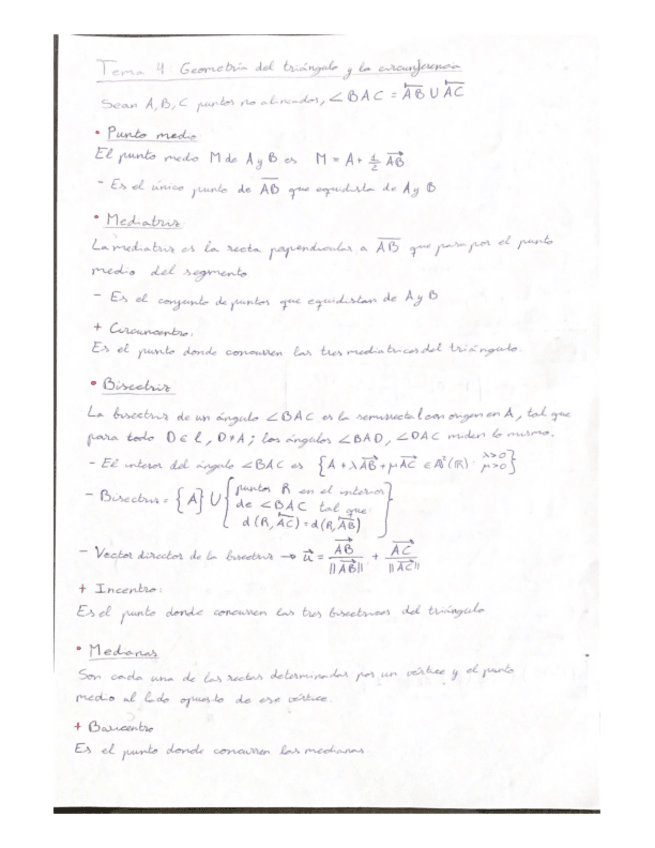 Tema 4: Geometría del triángulo y la circunferencia
Sean A, B, C puntos no alineados, ∠BAC = AB ∪ AC
• Punto medio
El punto medio M de A y B es M = A + 1/2 AB
- Es el único punto de AB que equidista de A y B
• Mediatriz
La mediatriz es la recta perpendicular a AB que pasa por el punto
medio del segmento
- Es el conjunto de puntos que equidistan de A y B
+ Circuncentro:
Es el punto donde concurren las tres mediatrices del triángulo.
• Bisectriz
La bisectriz de un ángulo ∠BAC es la semirrecta l con origen en A, tal que
para todo D ∈ l, D ≠ A; los ángulos ∠BAD, ∠DAC miden lo mismo.
- El interior del ángulo ∠BAC es {A + λAB + μAC ∈ A²(R) : λ>0 μ>0}
- Bisectriz = {A} ∪ {puntos R en el interior
de ∠BAC tal que:
d(R, AC) = d(R, AB)}
- Vector director de la bisectriz → u = AB/||AB|| + AC/||AC||
+ Incentro:
Es el punto donde concurren las tres bisectrices del triángulo
• Medianas
Son cada una de las rectas determinadas por un vértice y el punto
medio al lado opuesto de ese vértice.
+ Baricentro
Es el punto donde concurren las medianas